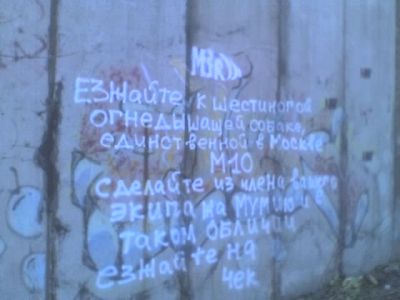 Езжайте к шестиногой
огнедышащей собаке,
единственной в Москве
М10
сделайте из члена вашего
экипажа мумию и в
таком обличии
езжайте на
чек